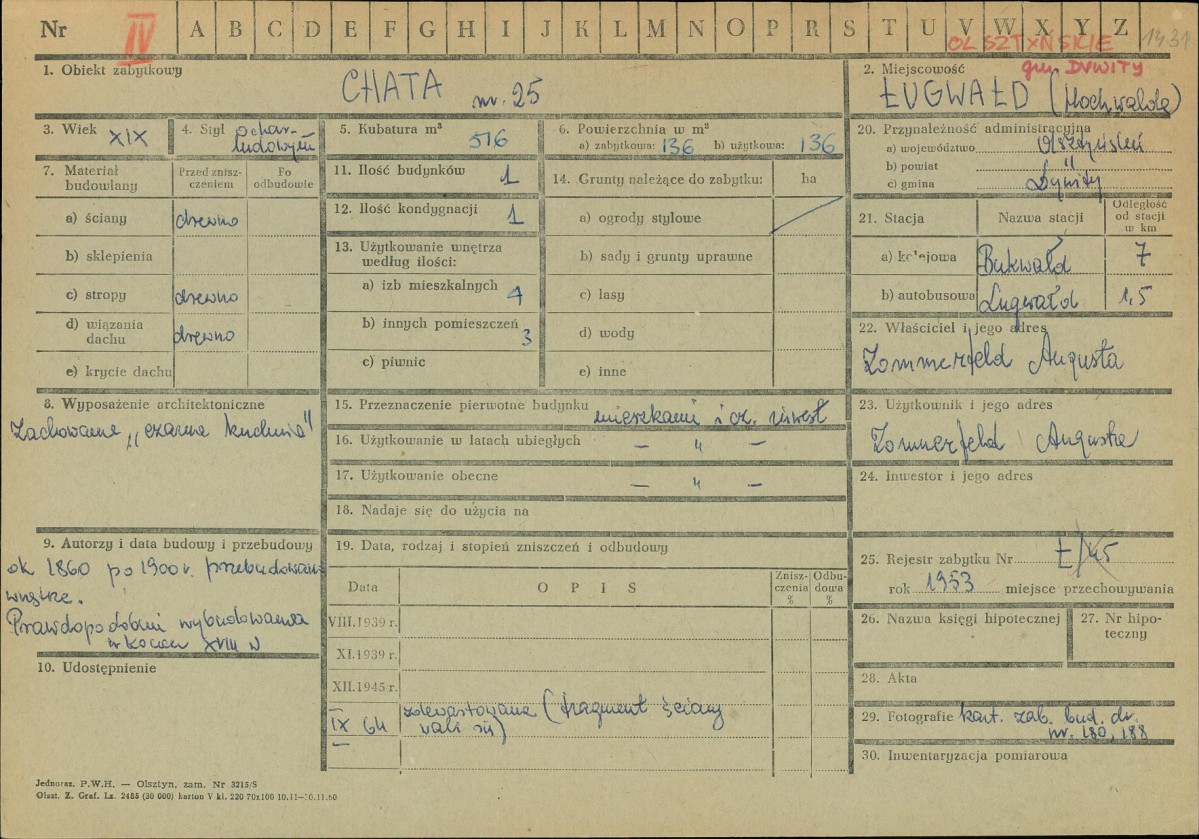 Nr IV A B C D E F G H I J K L M N O P R S T U V W X Y Z 1431
OLSZTYŃSKIE
gm. DYWITY
1. Obiekt zabytkowy
CHATA nr. 25
2. Miejscowość
ŁUGWAŁD (Hochwalde)
3. Wiek XIX
4. Styl
ludowym
5. Kubatura m³ 516
6. Powierzchnia w m²
a) zabytkowa: 136 b) użytkowa: 136
7. Materiał budowlany
Przed zniszczeniem
Po odbudowie
a) ściany drewno
b) sklepienia
c) stropy drewno
d) wiązania dachu drewno
e) krycie dachu
8. Wyposażenie architektoniczne
Zachowana „czarna kuchnia"
9. Autorzy i data budowy i przebudowy
ok 1860 po 1900 r. przebudowano
wnętrze.
Prawdopodobnie wybudowana
w końcu XVIII w
10. Udostępnienie
11. Ilość budynków 1
12. Ilość kondygnacji 1
13. Użytkowanie wnętrza
według ilości:
a) izb mieszkalnych 4
b) innych pomieszczeń 3
c) piwnic
14. Grunty należące do zabytku: ha
a) ogrody stylowe
b) sady i grunty uprawne
c) lasy
d) wody
e) inne
15. Przeznaczenie pierwotne budynku
16. Użytkowanie w latach ubiegłych — „ —
17. Użytkowanie obecne — „ —
18. Nadaje się do użycia na
19. Data, rodzaj i stopień zniszczeń i odbudowy
Data O P I S Zniszczenia % Odbudowa %
VIII.1939 r.
XI.1939 r.
XII.1945 r.
IX 64 zdewastowana (fragment ściany
wali się)
20. Przynależność administracyjna
a) województwo Olsztyński
b) powiat "
c) gmina Dywity
21. Stacja Nazwa stacji Odległość od stacji w km
a) kolejowa Bukwałd 7
b) autobusowa Ługwałd 1,5
22. Właściciel i jego adres
Zommerfeld Augusta
23. Użytkownik i jego adres
Zomnerfeld Augusta
24. Inwestor i jego adres
25. Rejestr zabytku Nr
rok 1953 miejsce przechowywania
26. Nazwa księgi hipotecznej
27. Nr hipoteczny
28. Akta
29. Fotografie kart. zab. bud. dr.
nr. 180, 188
30. Inwentaryzacja pomiarowa
Jednoraz. P.W.H. — Olsztyn, zam. Nr 3215/S
Olszt. Z. Graf. Lz. 2485 (30 000) karton V kl. 220 70x100